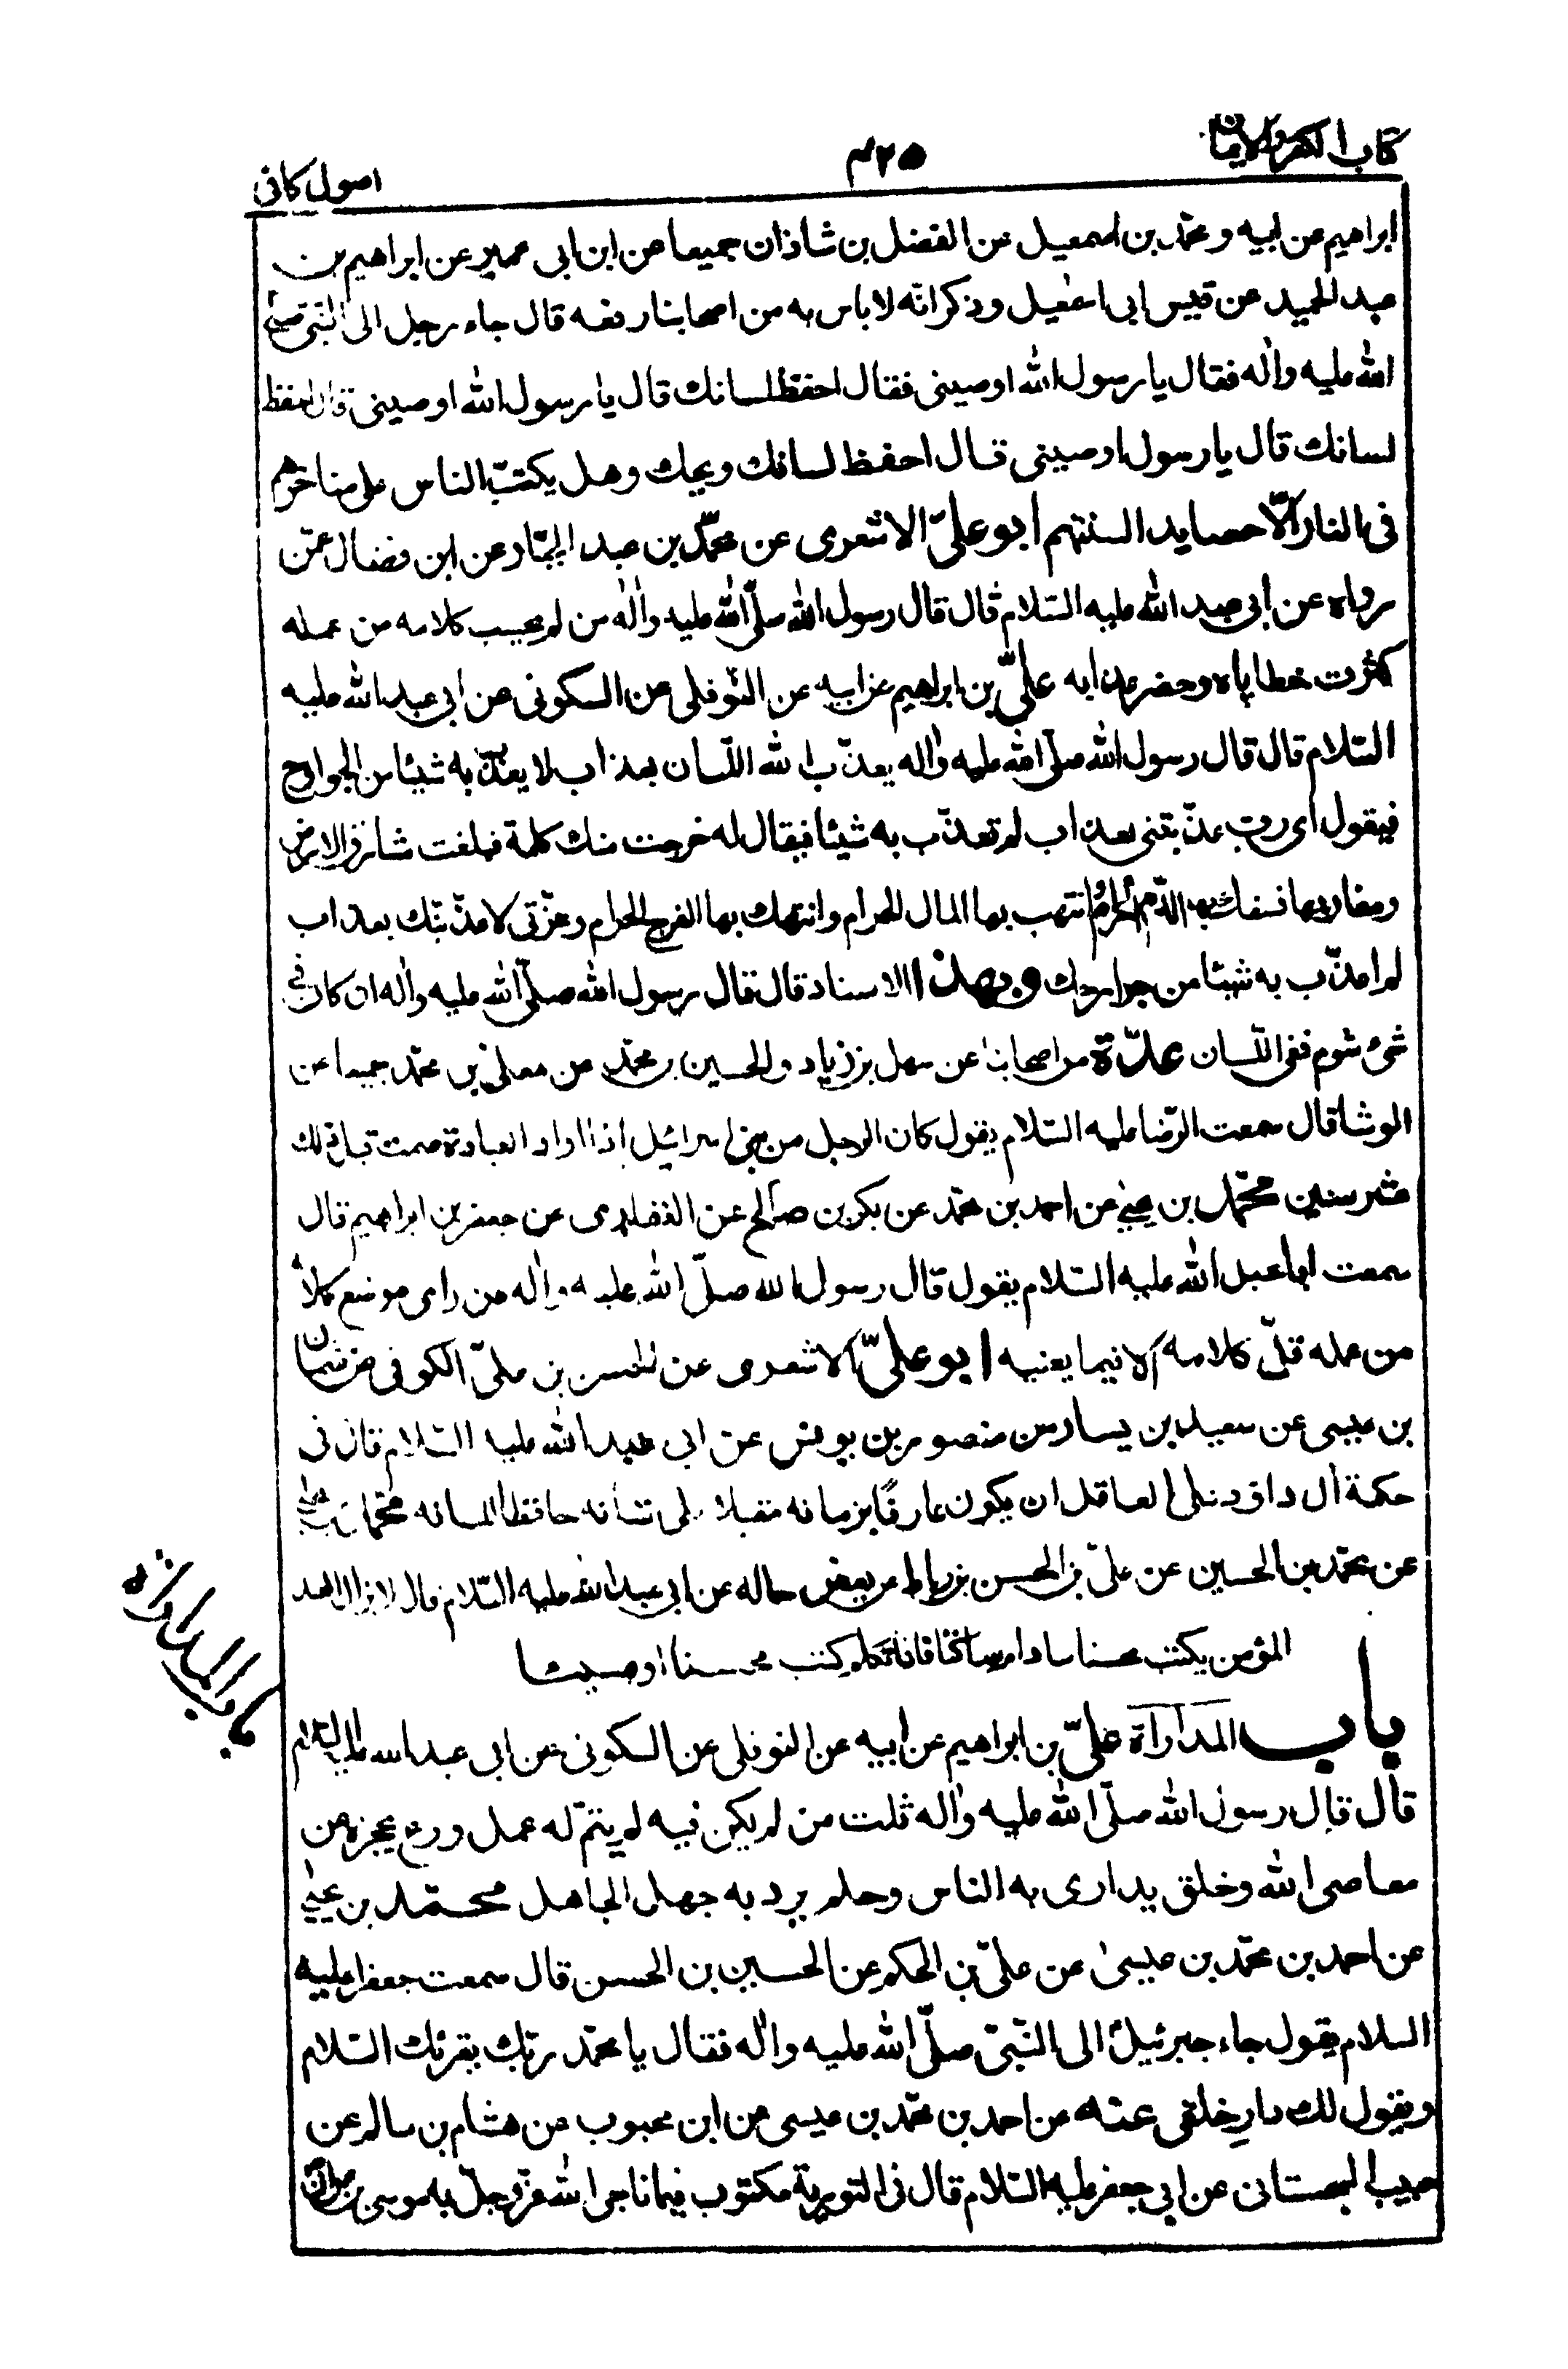 كتاب الكفر والايمان
٤٢٥
اصول كافى
ابراهيم عن ابيه و محمّد بن اسمعيل عن الفضل بن شاذان جميعا عن ابن ابى عمير عن ابراهيم بن
عبد الحميد عن قيس ابى اسمعيل وذكر انّه لا باس به من اصحابنا رفعه قال جاء رجل الى النّبى صلى
الله عليه واله فقال يا رسول الله اوصينى فقال احفظ لسانك قال يا رسول الله اوصينى قال احفظ
لسانك قال يا رسول اوصينى قال احفظ لسانك ويحك وهل يكتبّ الناس على مناخرهم
فى النار الّا حصايد السنتهم ابو علىّ الاشعرى عن محمّد بن عبد الجبّار عن ابن فضال عمّن
رواه عن ابى عبد الله عليه السّلام قال قال رسول الله صلّى الله عليه واله من لم يحسب كلامه من عمله
كثرت خطاياه وحضر عذابه علىّ بن ابراهيم عن ابيه عن النّوفلى عن السكونى عن ابى عبد الله عليه
السّلام قال قال رسول الله صلّى الله عليه واله يعذّب الله اللّسان بعذاب لا يعذّب به شيئا من الجوارح
فيقول اى ربّ عذّبتنى بعذاب لم تعذّب به شيئا فيقال له خرجت منك كلمة فبلغت مشارق الارض
ومغاربها فسفك بها الدّم الحرام وانتهب بها المال الحرام وانتهك بها الفرج الحرام وعزّتى لاعذّبنّك بعذاب
لم اعذّب به شيئا من جوارحك وبهذا الاسناد قال قال رسول الله صلّى الله عليه واله ان كان فى
شئ شوم ففى اللّسان عدّة من اصحابنا عن سهل بن زياد والحسين بن محمّد عن معلّى بن محمّد جميعا عن
الوشا قال سمعت الرّضا عليه السّلام يقول كان الرجل من بنى اسرائيل اذا اراد العبادة صمت قبل ذلك
عشر سنين محمّد بن يحيى عن احمد بن محمّد عن بكر بن صالح عن الغفارى عن جعفر بن ابراهيم قال
سمعت ابا عبد الله عليه السّلام يقول قال رسول الله صلّى الله عليه واله من راى موضع كلامه
من عمله قلّ كلامه الا فيما يعنيه ابو علىّ الاشعرى عن الحسن بن علىّ الكوفى عن عثمان
بن عيسى عن سعيد بن يسار عن منصور بن يونس عن ابى عبد الله عليه السّلام قال فى
حكمة ال داود على العاقل ان يكون عارفا بزمانه مقبلا على شأنه حافظا للسانه محمّد بن يحيى
عن محمّد بن الحسين عن علىّ بن الحسن بن رباط عن بعض رجاله عن ابى عبد الله عليه السّلام قال لا يزال العبد
المؤمن يكتب محسنا ما دام ساكتا فاذا تكلم كتب محسنا او مسيئا
باب المداراة علىّ بن ابراهيم عن ابيه عن النوفلى عن السكونى عن ابى عبد الله عليه السّلام
قال قال رسول الله صلّى الله عليه واله ثلث من لم يكن فيه لم يتمّ له عمل ورع يحجزه عن
معاصى الله وخلق يدارى به الناس وحلم يرد به جهل الجاهل محمّد بن يحيى
عن احمد بن محمّد بن عيسى عن علىّ بن الحكم عن الحسين بن الحسن قال سمعت جعفرا عليه
السلام يقول جاء جبرئيل الى النّبىّ صلّى الله عليه واله فقال يا محمّد ربّك يقرئك السّلام
ويقول لك دار خلقى عنه عن احمد بن محمّد بن عيسى عن ابن محبوب عن هشام بن سالم عن
حبيب السجستانى عن ابى جعفر عليه السّلام قال فى التورية مكتوب فيما ناجى الله عزّ وجلّ به موسى بن عمران
باب المداراة